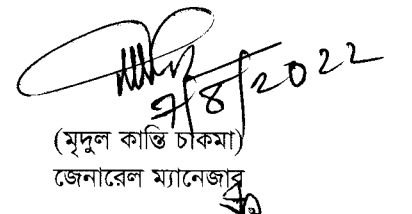 7/8/2022
(মৃদুল কান্তি চাকমা)
জেনারেল ম্যানেজার